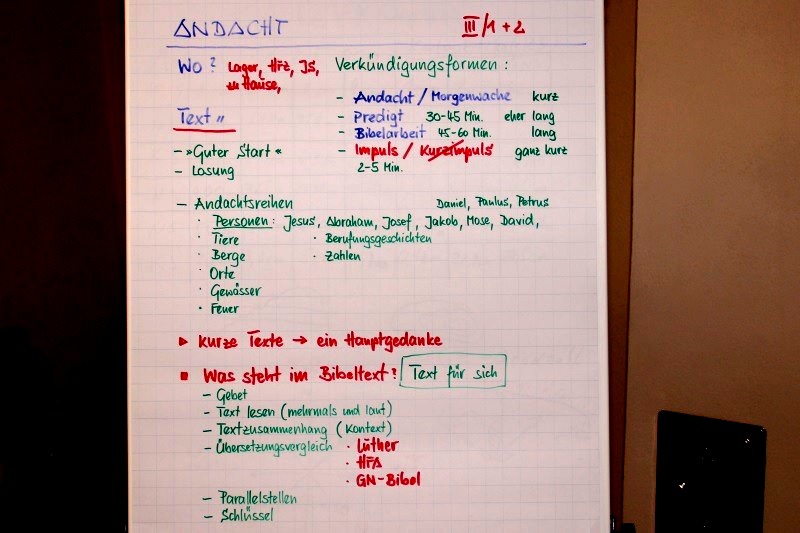 ANDACHT III/1+2
Wo? Lager, Hfz, JS,
zu Hause,
Verkündigungsformen:
- Andacht / Morgenwache kurz
- Predigt 30-45 Min. eher lang
- Bibelarbeit 45-60 Min. lang
- Impuls / Kurzimpuls ganz kurz
2-5 Min.
Text"
- »Guter Start«
- Losung
- Andachtsreihen
Daniel, Paulus, Petrus
· Personen: Jesus, Abraham, Josef, Jakob, Mose, David,
· Tiere · Berufungsgeschichten
· Berge · Zahlen
· Orte
· Gewässer
· Feuer
▶ kurze Texte → ein Hauptgedanke
■ Was steht im Bibeltext? Text für sich
- Gebet
- Text lesen (mehrmals und laut)
- Textzusammenhang (Kontext)
- Übersetzungsvergleich · Luther
· HFA
· GN-Bibel
- Parallelstellen
- Schlüssel